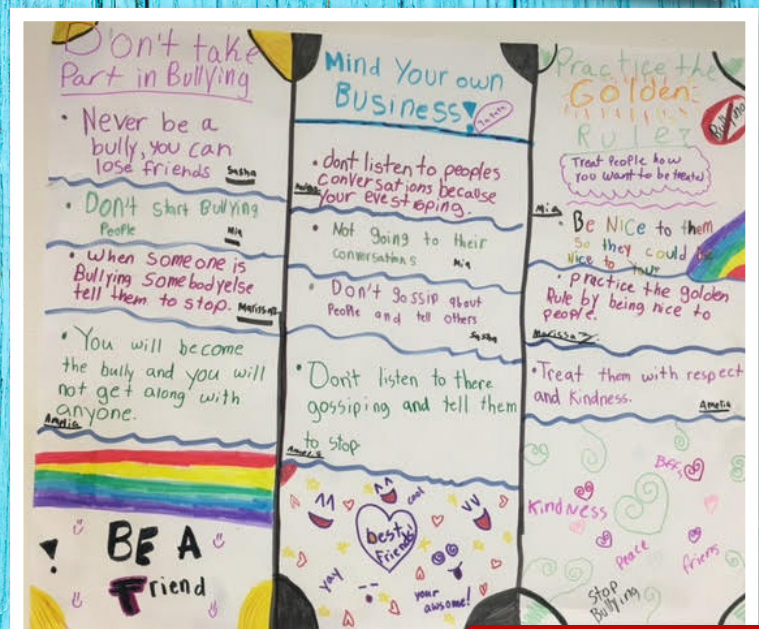 Don't take
Part in Bullying
• Never be a
bully, you can
lose friends Sasha
• DON't start Bullying
People Mia
• When someone is
Bullying Somebodyelse
tell them to stop. Marissa
• You will become
the bully and you will
not get along with
anyone.
Amelia
BE A
Friend
!
Mind Your own
BUSINESS!
• dont listen to peoples
conversations because
your evestoping.
• Not going to their
conversations Mia
• Don't gossip about
People and tell others
Sasha
• Don't listen to there
gossiping and tell them
to stop
cool
best
Friends
yay
your
awsome!
Practice the
Golden
Rule
Bullying
Treat People how
you want to be treated
Mia
• Be NiCE to them
So they could be
Nice to your
• practice the golden
Rule by being nice to
people.
Marissa
• Treat them with respect
and Kindness.
Amelia
BFF
Kindness
Peace
friens
Stop
Bullying